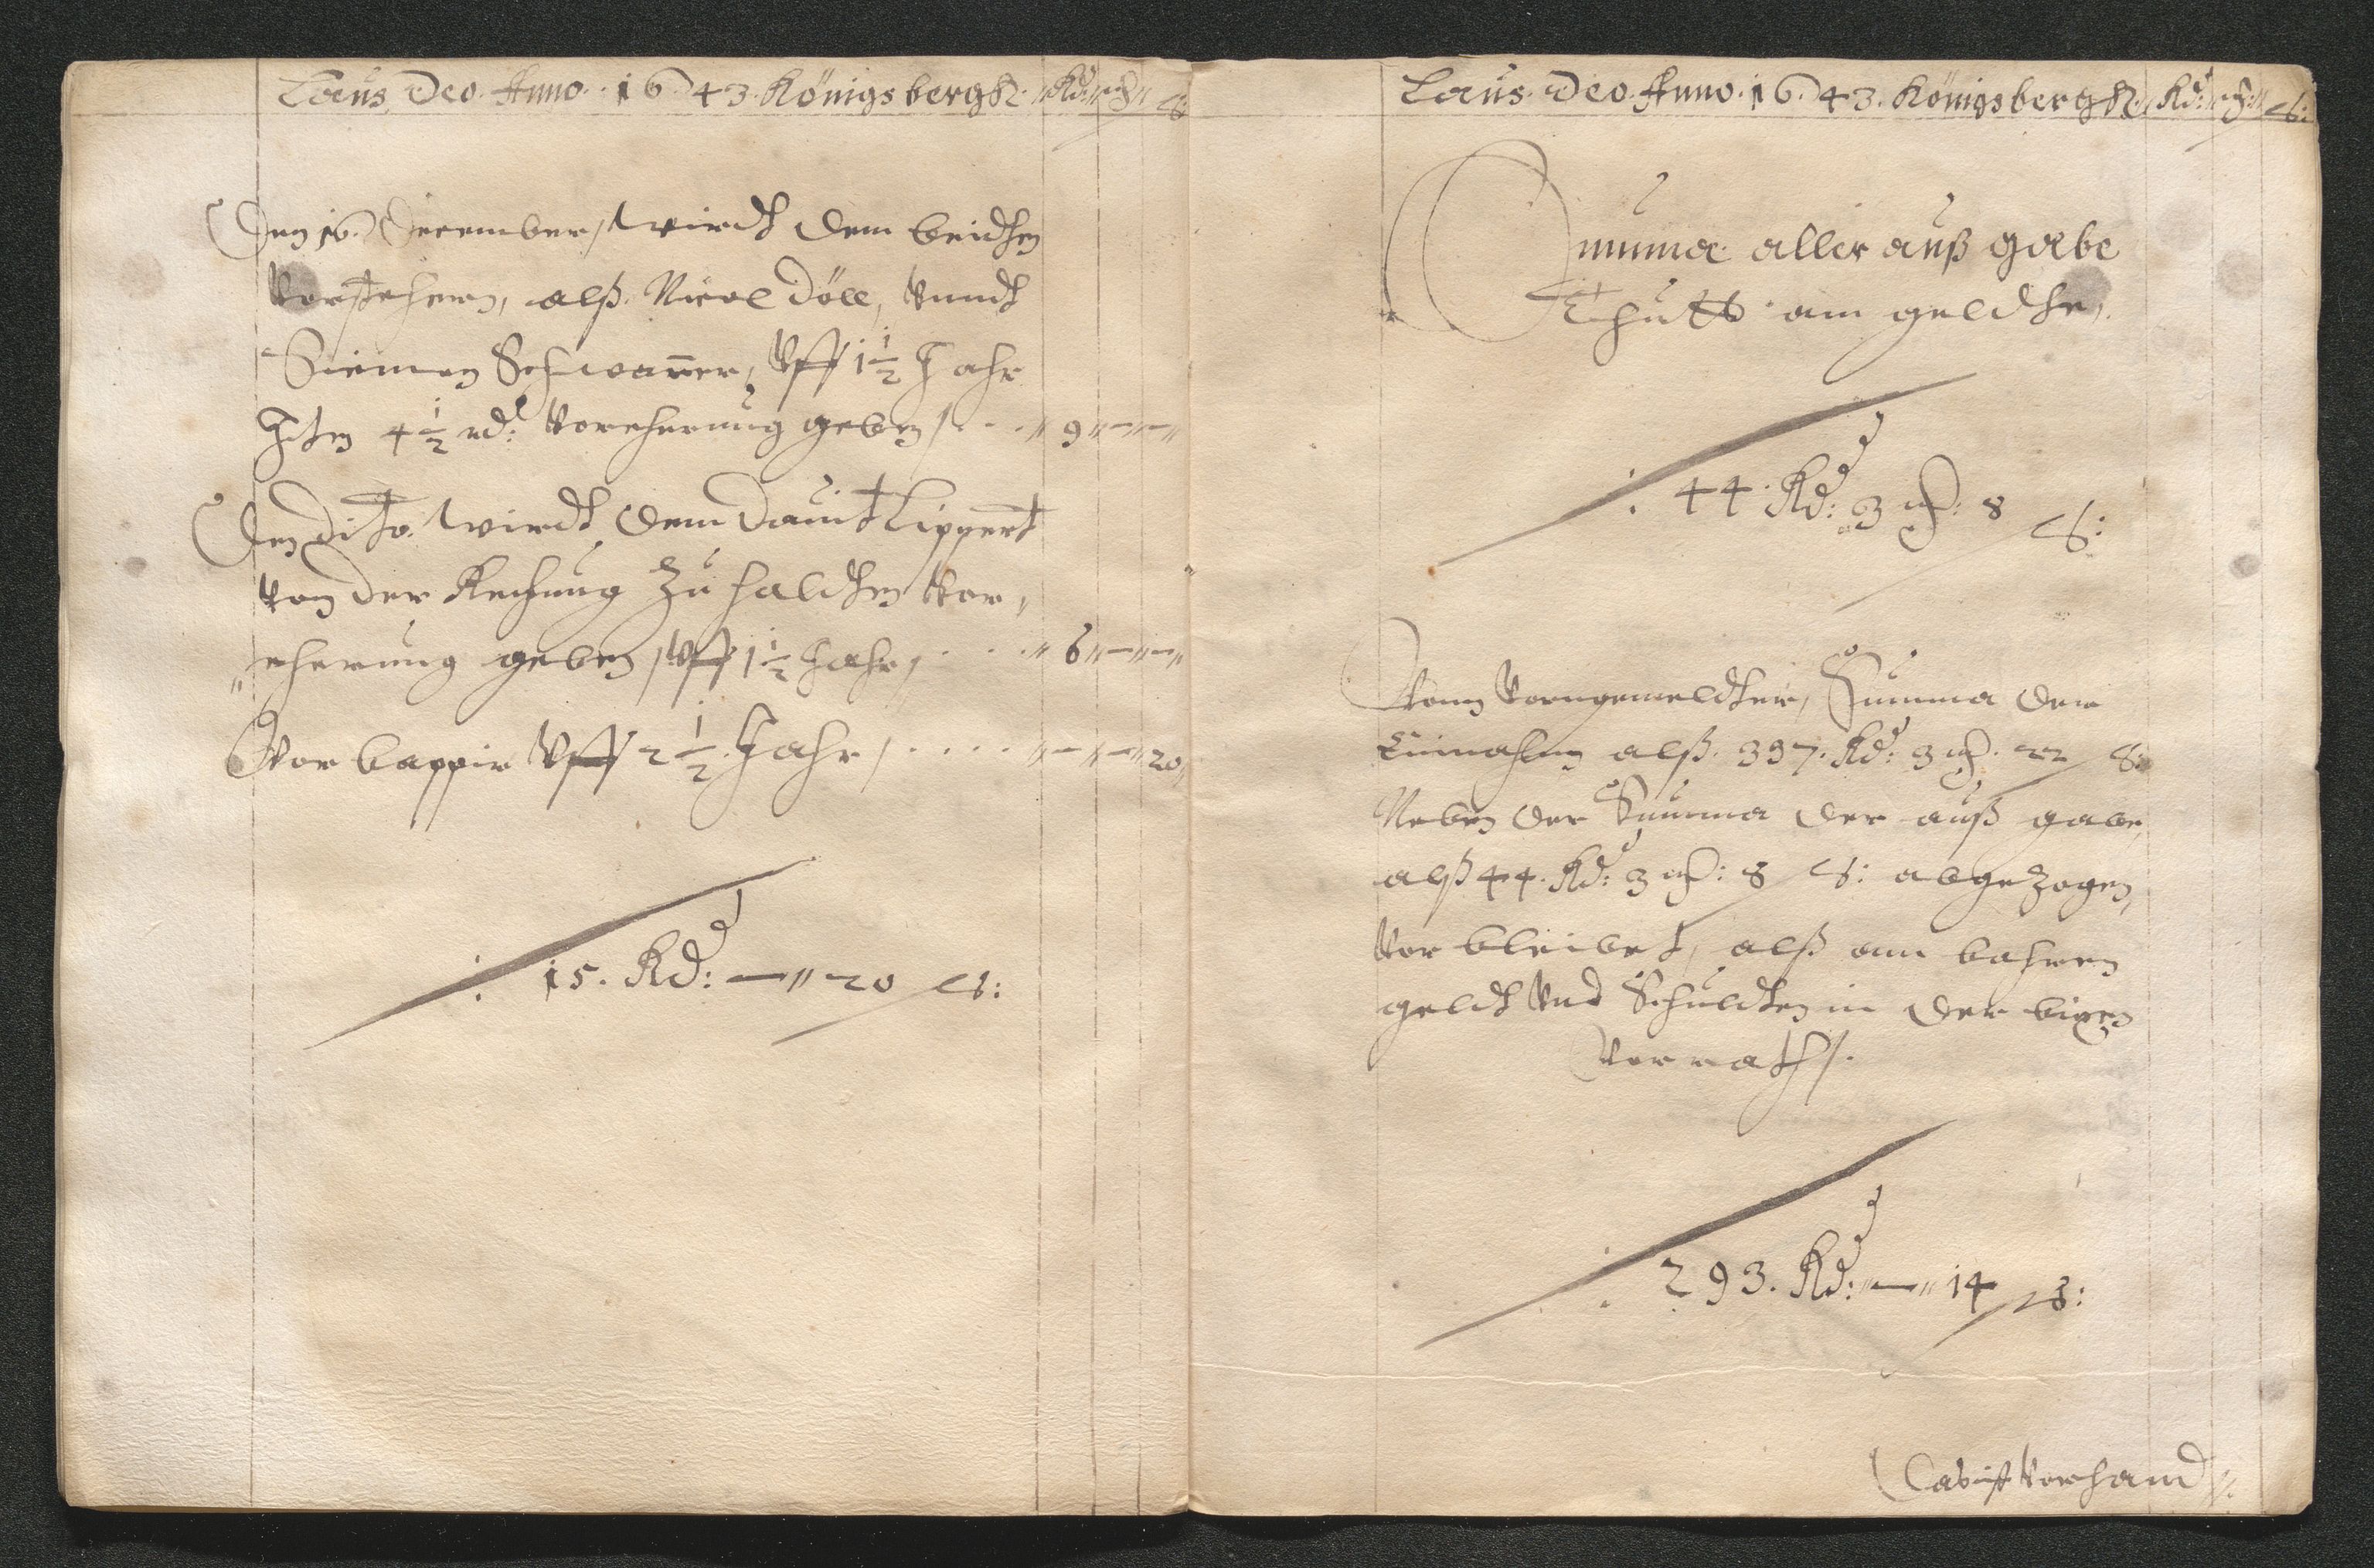 Laus Deo. Anno. 1643. Königsbergk. Rd: ch: ₰:
Den 16. December, wirdt dem beidten
Vorstehern, alß. Nicol Döll, Vnndt
Simen Schwaner, Vff 1 1/2 Jahr
Jeden 4 1/2 rd: Vorehrung geben /. . . . 9 — —
Den dito. wirdt. dem Dauit Lippert
Von der Rechnung zu haldten Vor,
"ehrung geben / Vff 1 1/2 Jahr / . . . . 6 — —
Vor bappir Vff 2 1/2 Jahr / . . . . — — 20
15. Rd: — " 20 ₰:
Laus. Deo. Anno. 1643. Königsbergk. Rd: ch: ₰:
Summa aller auß gabe
Thutt am geldte,
44. Rd: 3 ch: 8 ₰:
Vonn Vorngemeldter, Summa der
Einnahm alß. 337. Rd: 3 ch. 22 ₰:
Neben der Summa der auß gabe,
alß 44. Rd: 3 ch: 8 ₰: abgezogen,
Vor bleibet, alß ann bahren
geldt Vnd Schuldten in der bixen
Vorrath /.
293. Rd: — " 14 ₰:
Vorhand